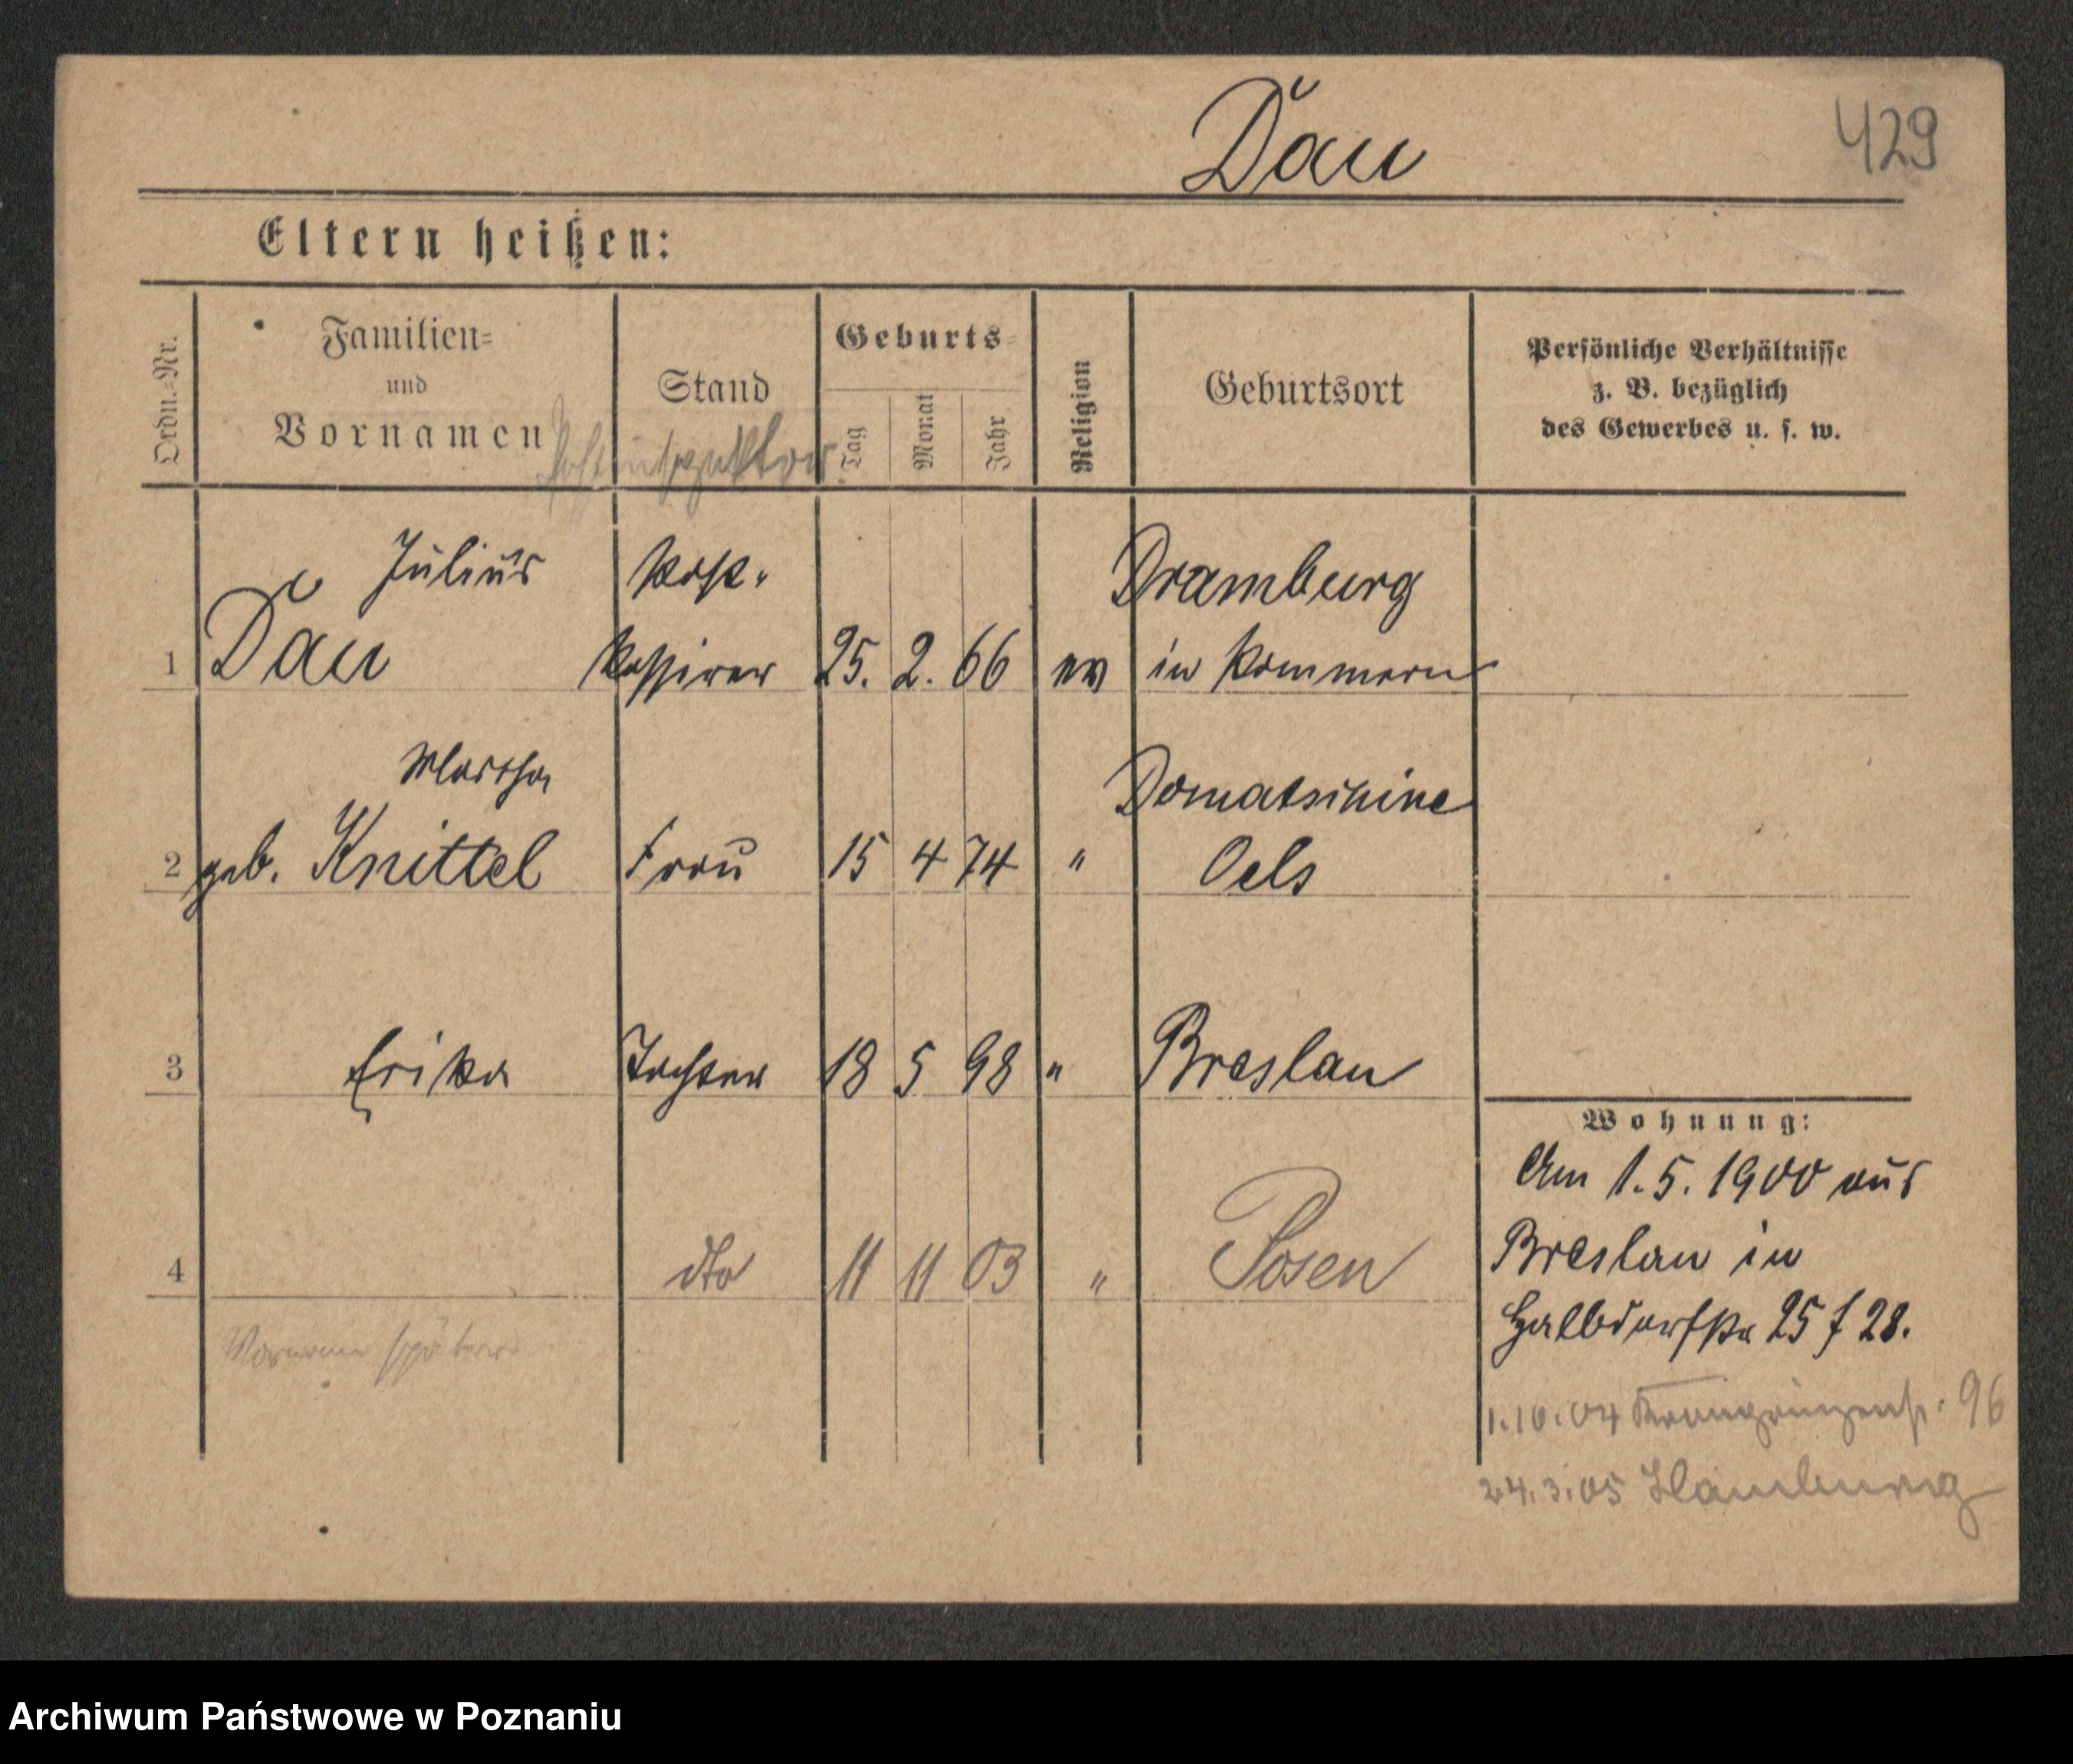 Dau
429
Eltern heißen:
Ordn.-Nr.
Familien-
und
Vornamen
Stand
Geburts-
Tag
Monat
Jahr
Religion
Geburtsort
Persönliche Verhältnisse
z. B. bezüglich
des Gewerbes u. s. w.
Postinspektor
Julius Post- Dramburg
1 Dau Kassirer 25. 2. 66 ev in Pommern
Martha Domatschine
2 geb. Knittel Frau 15 4 74 " Oels
3 Erika Tochter 18 5 98 " Breslau
4 dto 11 11 03 " Posen
Vorname später
Wohnung:
Am 1.5.1900 aus
Breslau in
Halbdorfstr 25 f 28.
1.10.04 Kronprinzenstr. 96
24.3.05 Hamburg
Archiwum Państwowe w Poznaniu